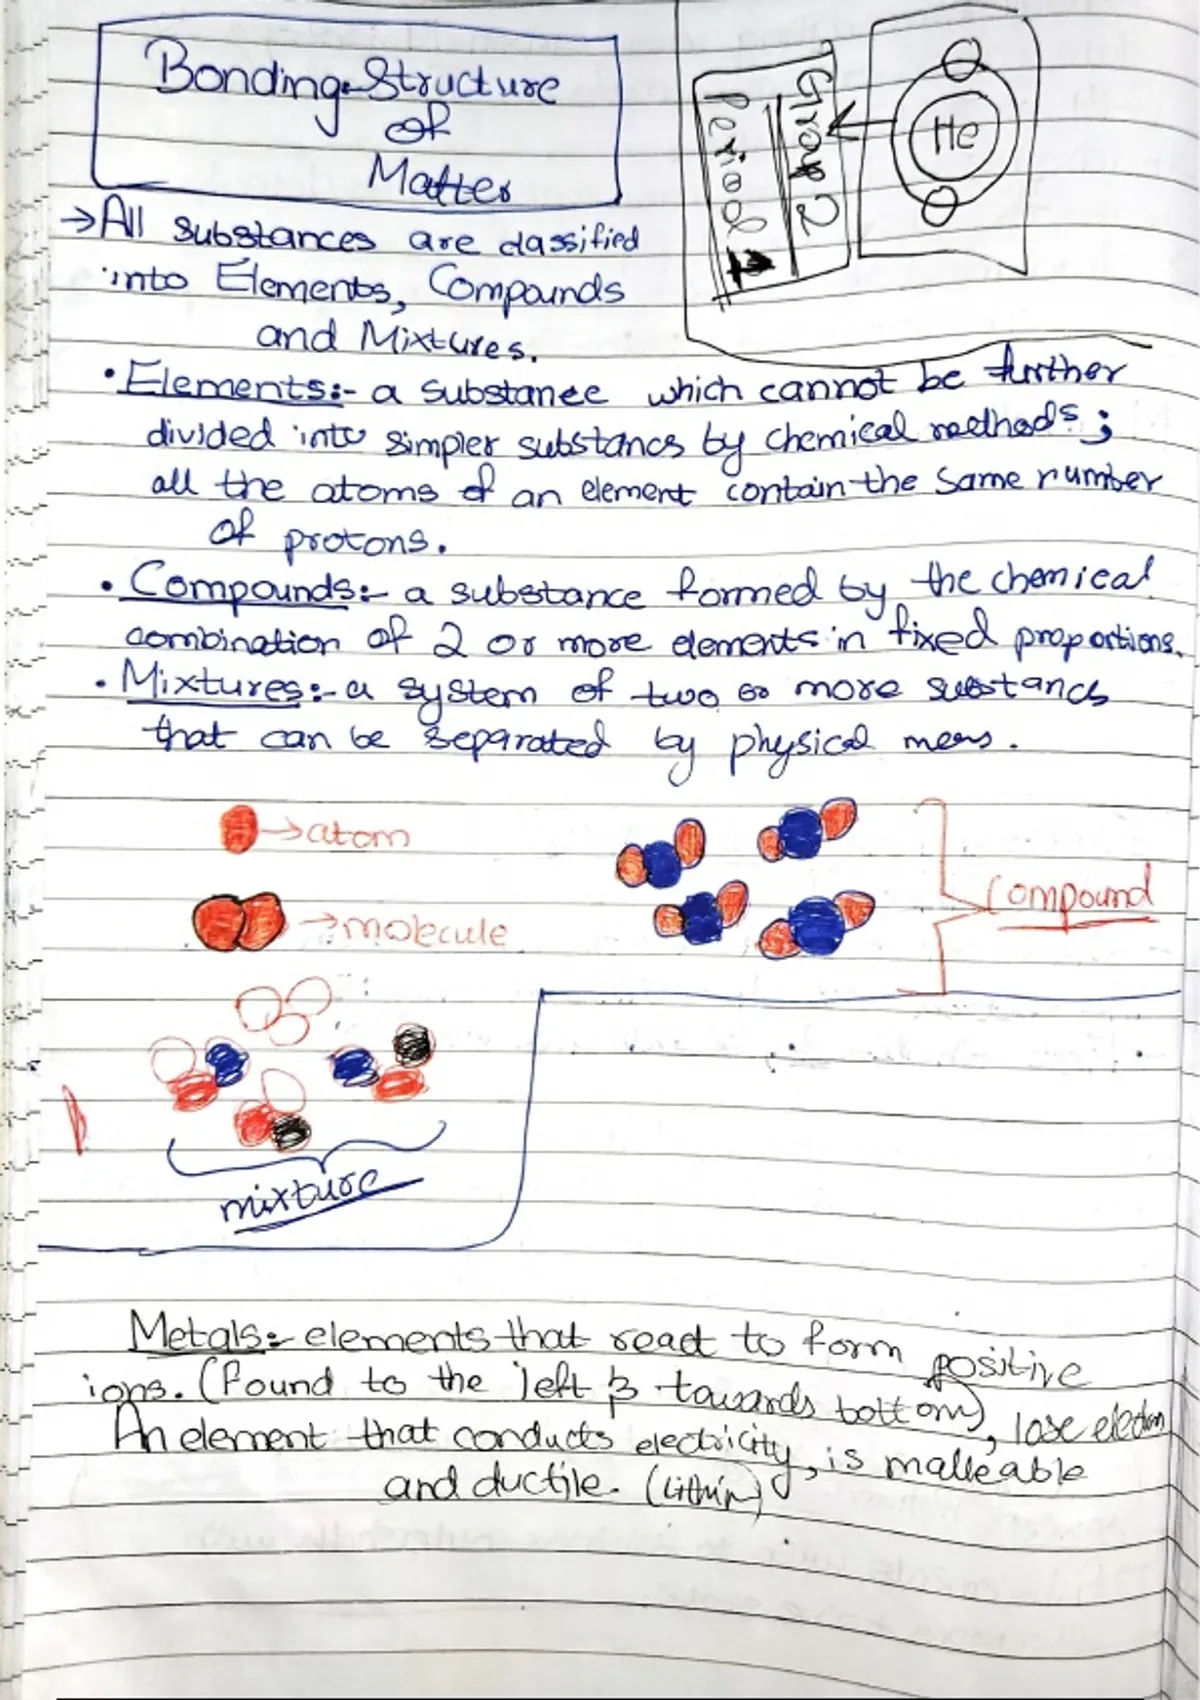 Bonding & Structure
of
Matter
He
Group 2
Period 1
→ All substances are classified
into Elements, Compounds
and Mixtures.
• Elements:- a substance which cannot be further
divided into simpler substancs by chemical methods;
all the atoms of an element contain the same number
of protons.
• Compounds:- a substance formed by the chemical
combination of 2 or more elements in fixed proportions.
• Mixtures:- a system of two or more substancs
that can be separated by physical means.
→ atom
→ molecule
Compound
mixture
Metals:- elements that react to form positive
ions. (found to the left & towards bottom), lose electron
An element that conducts electricity, is malleable
and ductile.